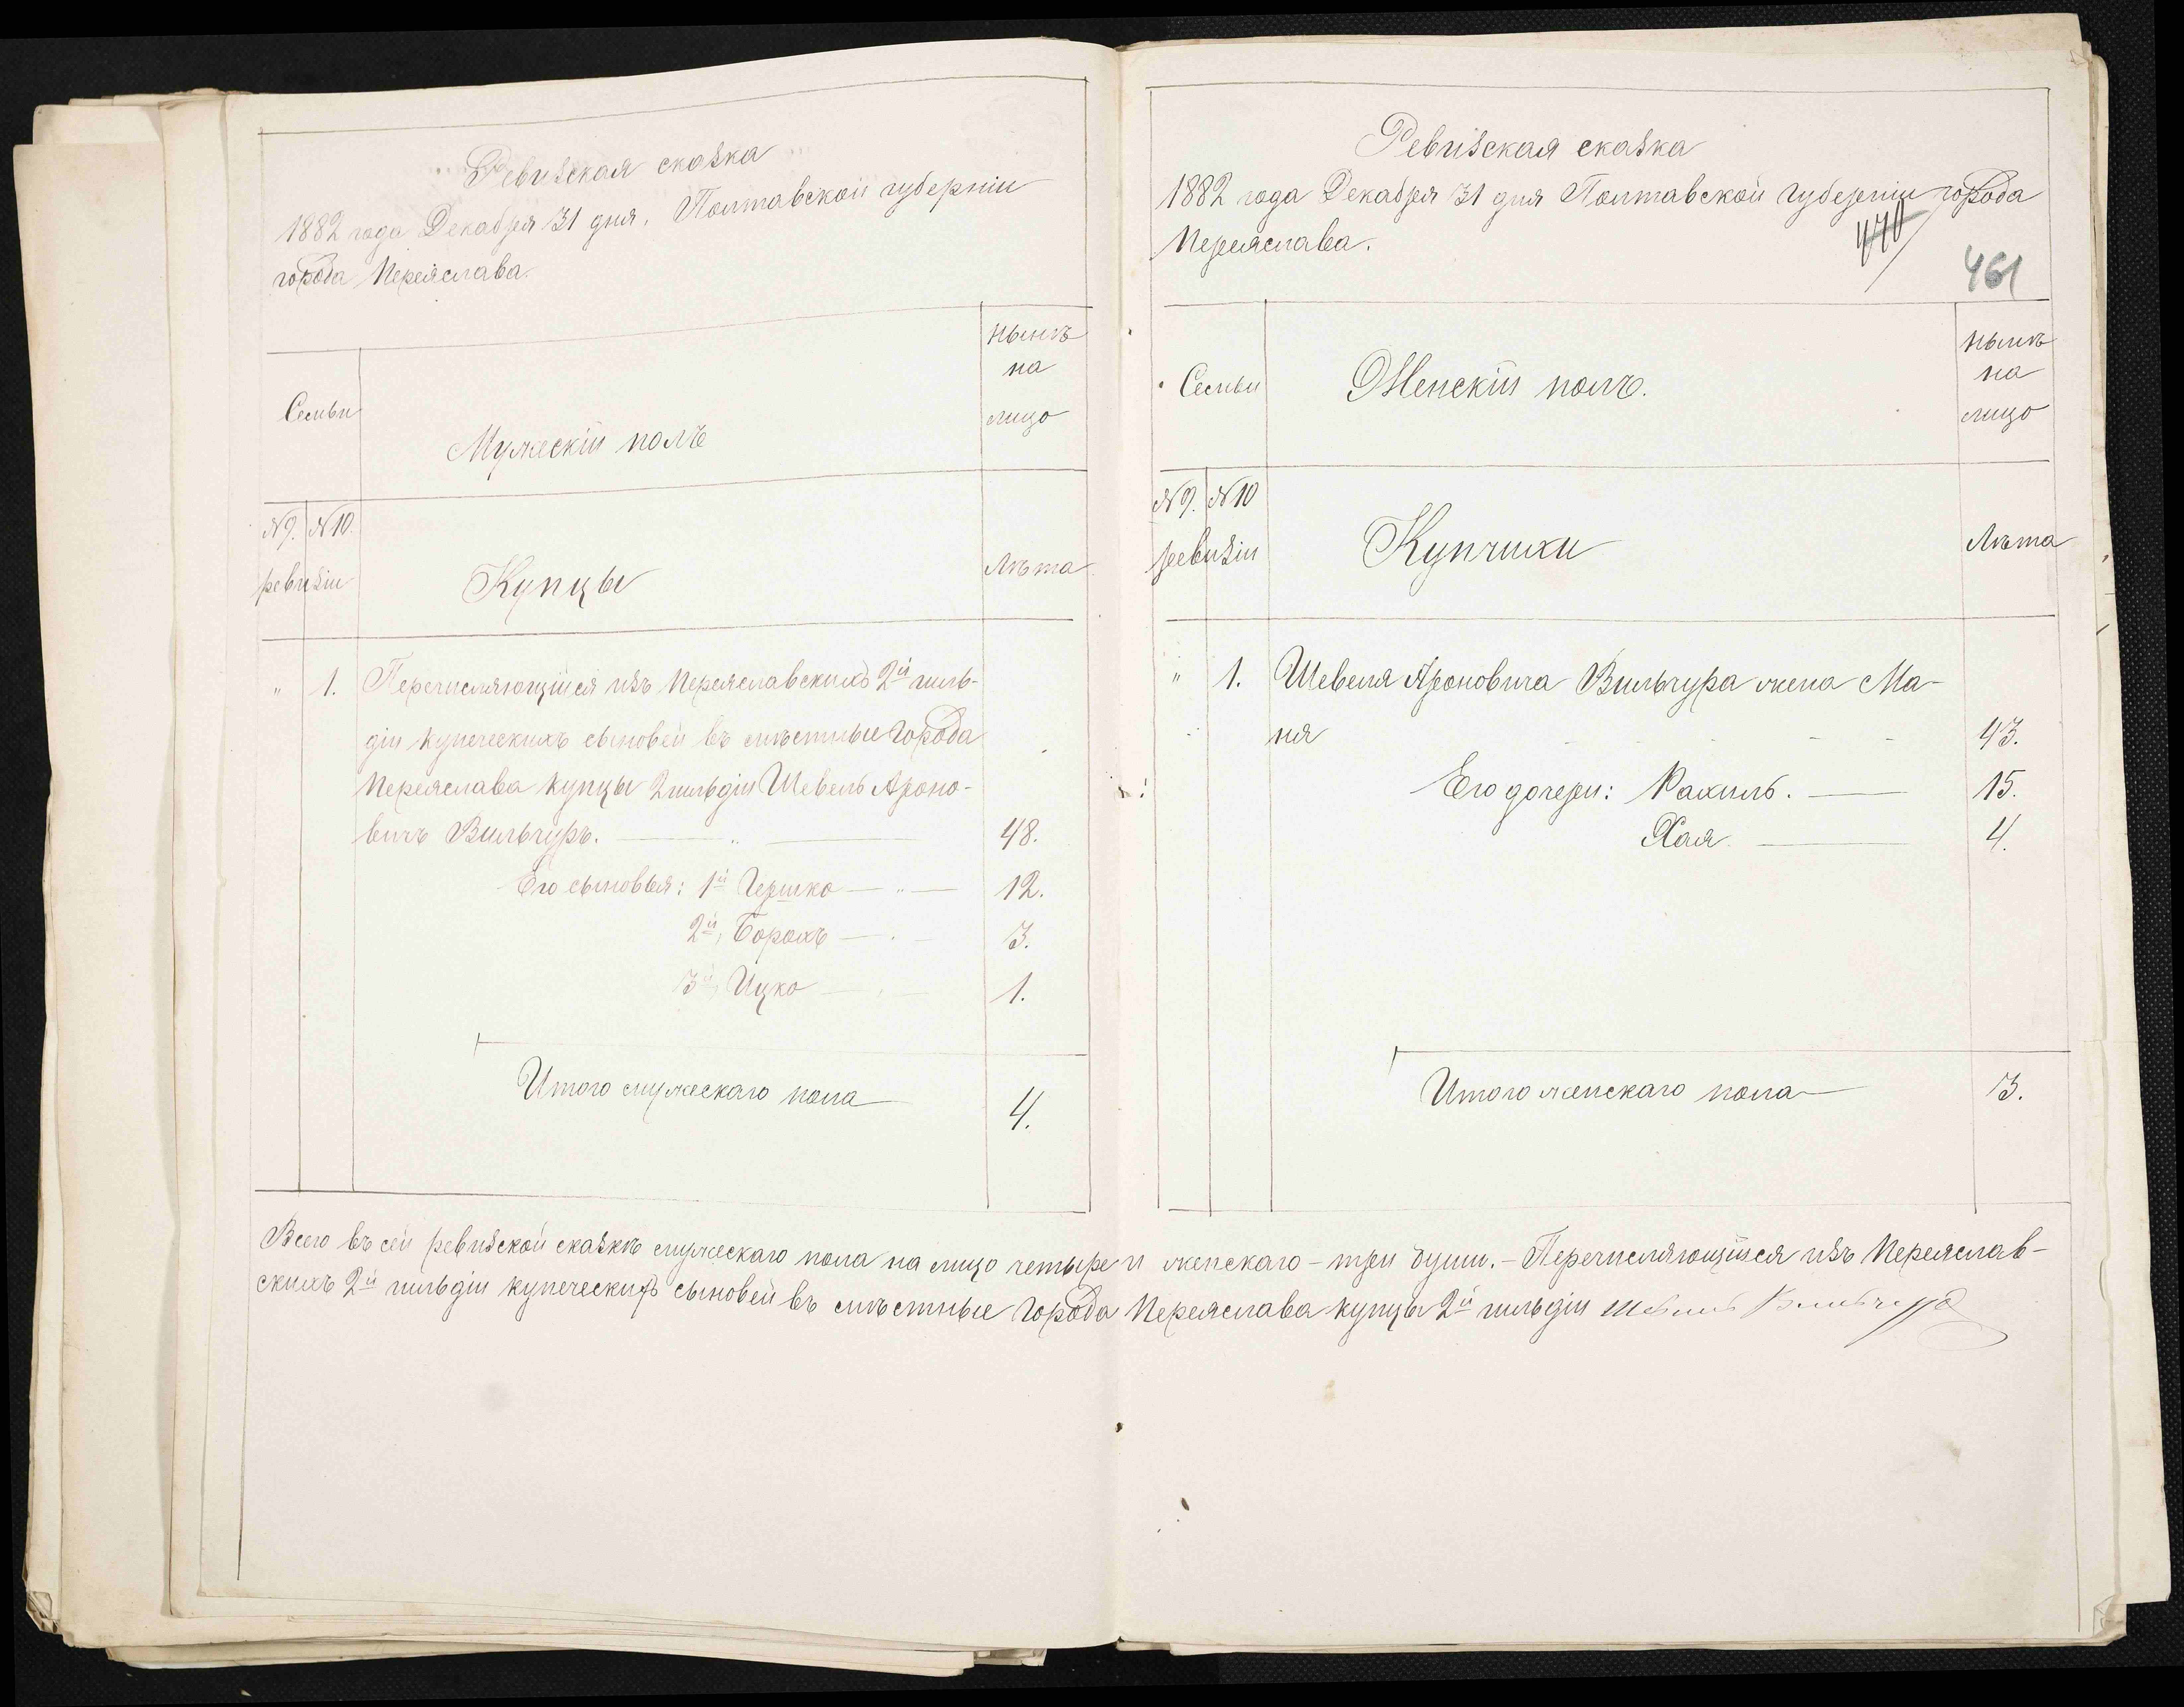 Ревизская сказка
1882 года Декабря 31 дня. Полтавской губернiи
города Переяслава.
Семьи
Мужескiй полъ
Нынѣ
на
лицо
№ 9. № 10.
ревизiи
Купцы
Лѣта
" 1. Перечисляющiйся изъ Переяславскихъ 2й гиль-
дiи купеческихъ сыновей въ мѣстные города
Переяслава купцы 2 гильдiи Шевель Ароно-
вичъ Вильчуръ. 48.
Его сыновья: 1й Гершко 12.
2й, Борохъ 3.
3й, Ицко 1.
Итого мужескаго пола 4.
Ревизская сказка
1882 года Декабря 31 дня Полтавской губернiи города
Переяслава.
440
461
Семьи
Женскiй полъ.
Нынѣ
на
лицо
№ 9. № 10
ревизiи
Купчихи
Лѣта
" 1. Шевеля Ароновича Вильчура жена Ма-
ня 43.
Его дочери: Рахиль. 15.
Хая. 4.
Итого женскаго пола 3.
Всего въ сей ревизской сказкѣ мужескаго пола на лицо четыре и женскаго - три души. - Перечисляющiйся изъ Переяслав-
скихъ 2й гильдiи купеческихъ сыновей въ мѣстные города Переяслава купцы 2й гильдiи Шевель Вильчуръ